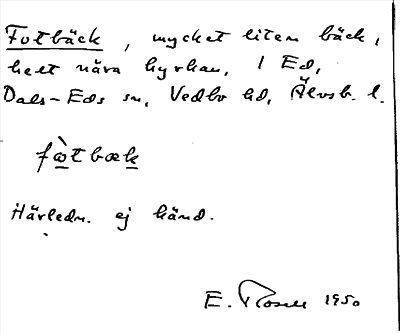 Futbäck, mycket liten bäck,
helt nära kyrkan, i Ed,
Dals-Eds sn, Vedbo hd, Älvsb. l.
fὰtbæk
Härledn. ej känd.
E. Rosell 1950